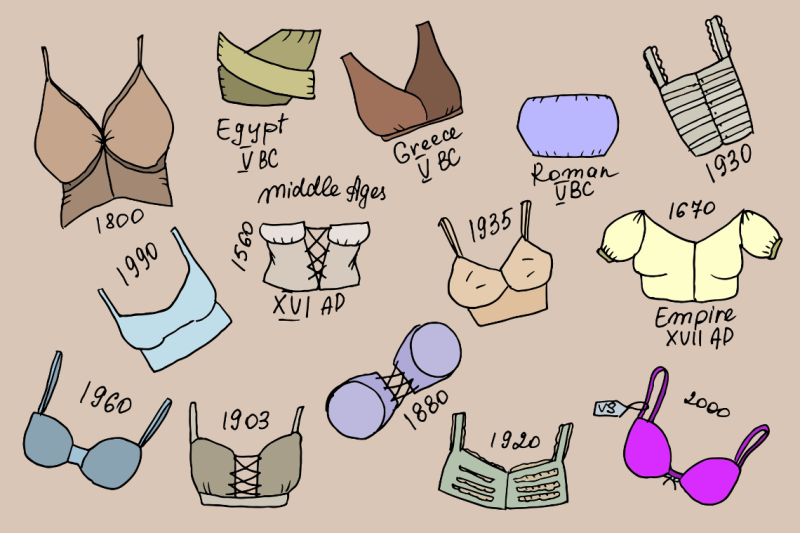 Egypt
V BC
Greece
V BC
Roman
V BC
1930
1800
Middle Ages
1560
XVI AD
1935
1670
Empire
XVII AD
1990
1960
1903
1880
1920
VS
2000